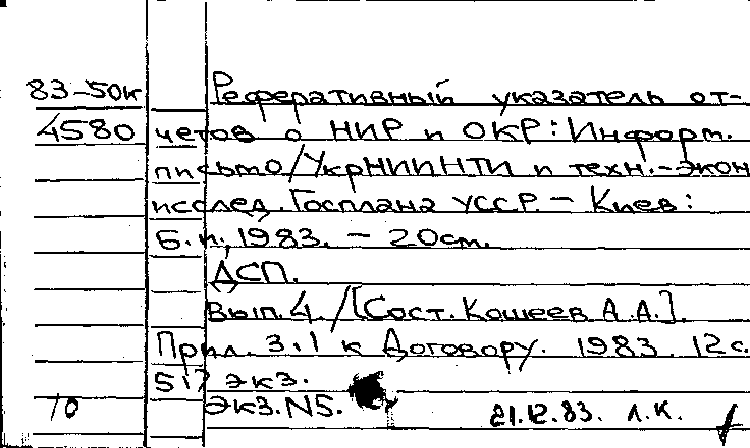 83-50к Реферативный указатель от-
4580 четов о НИР и ОКР: Информ.
письмо/УкрНИИНТИ и техн.-экон
исслед. Госплана УССР. — Киев:
Б.и., 1983. — 20см.
ДСП.
Вып. 4. /[Сост. Кошеев А.А.].
Прил. 3.1 к Договору. 1983. 12с.
517 экз.
10 Экз. N5. 21.12.83. л.к.